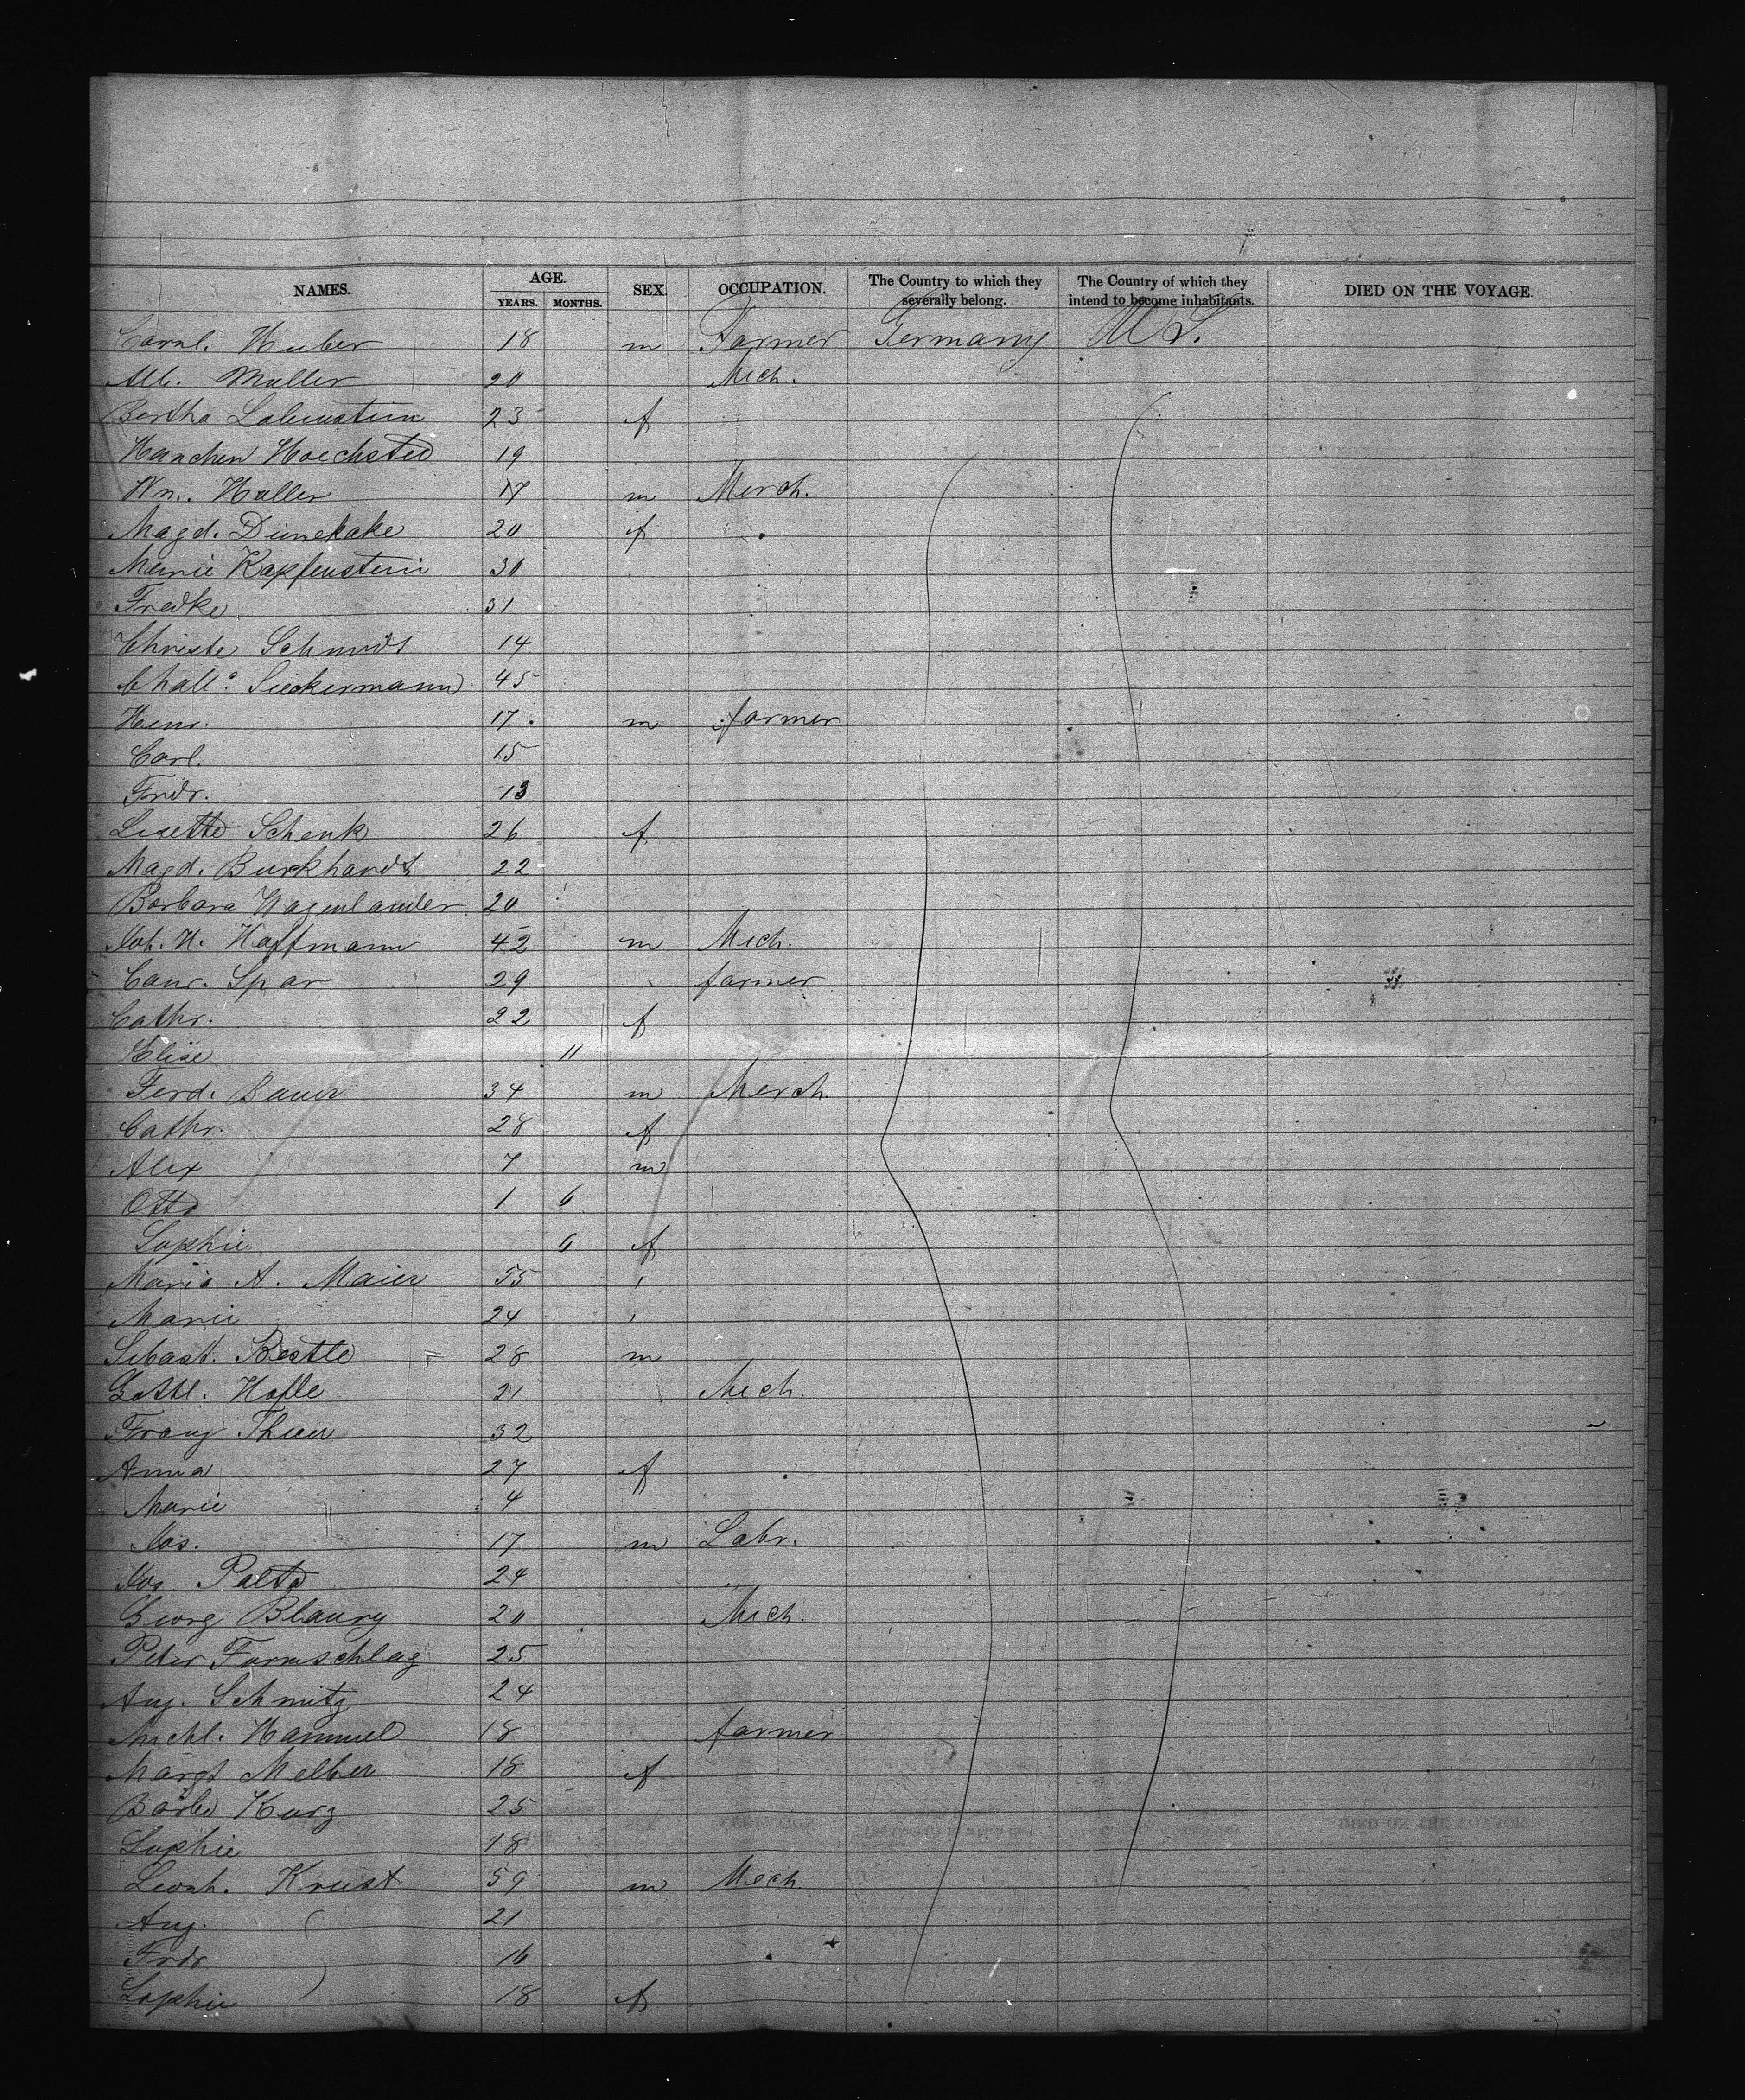 NAMES. AGE. SEX. OCCUPATION. The Country to which they severally belong. The Country of which they intend to become inhabitants. DIED ON THE VOYAGE.
YEARS. MONTHS.
Huber 18 m Farmer Germany U S.
Alb. Muller 20 Mech.
Bertha 23 f
Hanchen Hoechsted 19
Wm. Haller 17 m Merch.
Magd. Dunekake 20 f
Marie Kapfenstein 30
Fredke 31
Christe Schmidt 14
Siekermann 45
Henr. 17 m farmer
Carl. 15
Fridr. 13
Lisette Schenk 26 f
Magd. Burkhardt 22
Barbara Wagenlander 20
Joh. H. Hoffmann 42 m Mech.
Conr. Spar 29 farmer
Cathr. 22 f
Elise 11
Ferd. Bauer 34 m Merch.
Cathr. 28 f
Alex 7 m
Otto 1 6
Sophie 6 f
Maria A. Maier 55
Marie 24
Sebast. Bestle 28 m
Gottl. Hofle 21 Mech.
Franz 32
Anna 27 f
Marie 4
Jos. 17 m Labr.
Jos 24
Georg Blaury 20 Mech.
Peter 25
Aug. Schmitz 24
Michl. Hammel 18 farmer
Margt Melber 18 f
Barbe Kurz 25
Sophie 18
Leonh. Krust 59 m Mech
Aug. 21
Frdr 16
Sophie 18 f